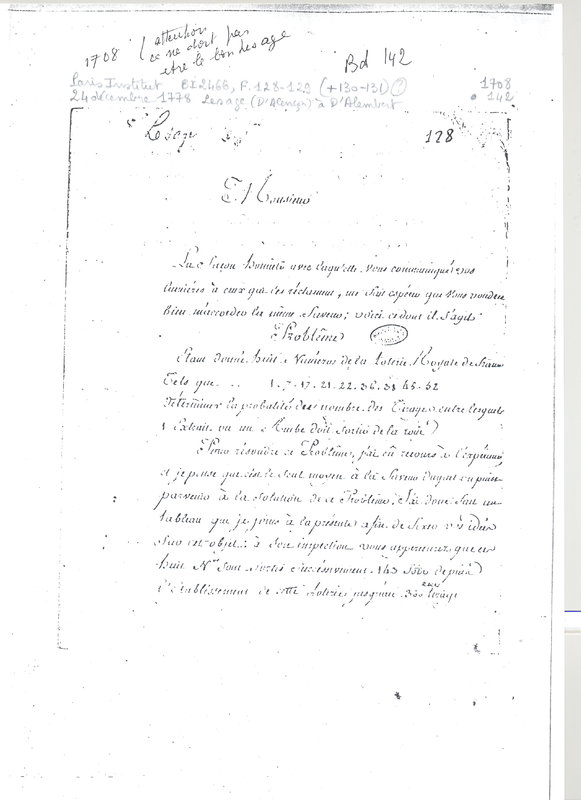 1708 (attention
ce ne doit pas
etre le bon Lesage
Bd 142
Paris Institut 2466, F. 128-129 (+130-131)
1708
24 décembre 1778 Lesage (D'Alençon) à D'Alembert
142
Lesage
128
Monsieur
La façon honnête avec laquelle vous communiqués vos
lumières à ceux qui les réclament, me fait espérer que vous voudrez
bien m'accorder la même faveur; voici ce dont il s'agit
Problême
Etant donné huit Numéros de la Loterie Royale de France
Tels que .. 1. 7. 17. 21. 22. 36. 45. 52
Déterminer la probabilité des nombre des Tirages entre lesquels
1 Extrait ou un Ambe doit sortir de la roüe
Pour résoudre ce Problême, j'ai eû recours à l'expérience
et je pense que c'est le seul moyen à la faveur duquel on puisse
parvenir à la solution de ce Problême. J'ai donc fait un
tableau que je joins à la présente afin de fixer vos idées
sur cet objet; à son inspection vous appercevrez que ces
huit Nos sont sortis 143 fois depuis
l'établissement de cette Loterie jusqu'au tirage